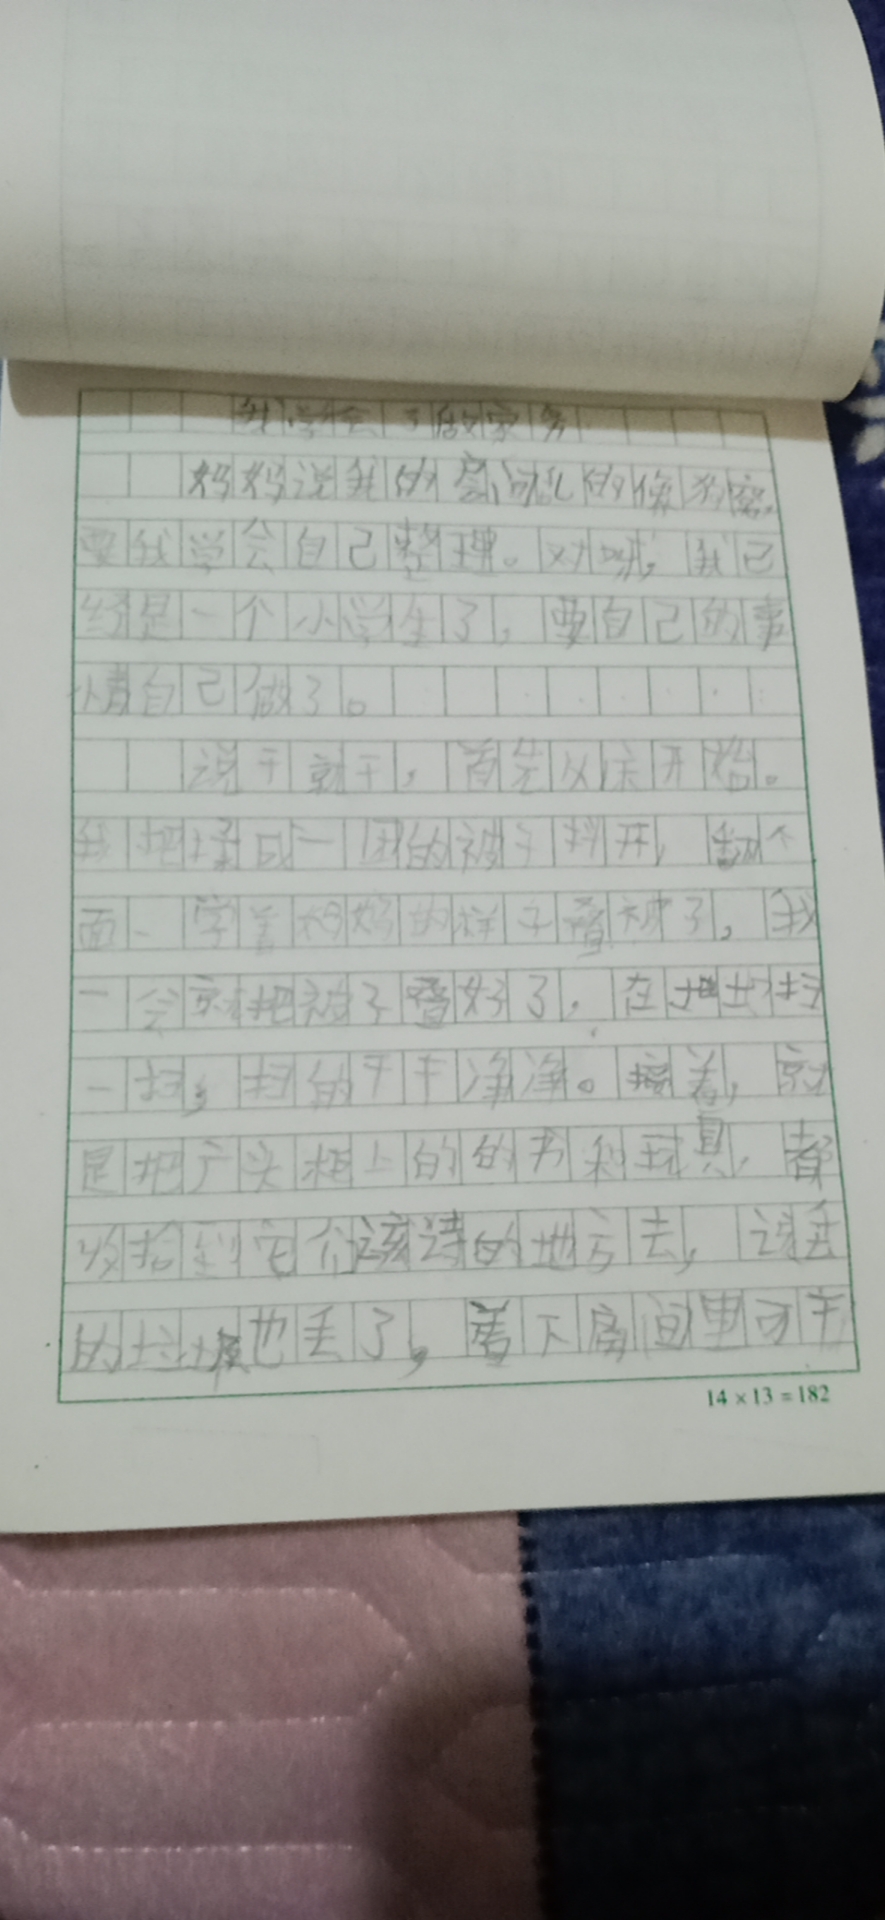 我学会了做家务
妈妈说我的房间乱的像狗窝,
要我学会自己整理。对呀,我已
经是一个小学生了,要自己的事
情自己做了。
说干就干,首先从床开始。
我把揉成一团的被子抖开,翻个
面、学着妈妈的样子叠被子,我
一会就把被子叠好了,在地上扫
一扫,扫的干干净净。接着,就
是把床头柜上的的书和玩具,都
收拾到它们该待的地方去,该丢
的垃圾也丢了,看下房间里可干
14×13=182